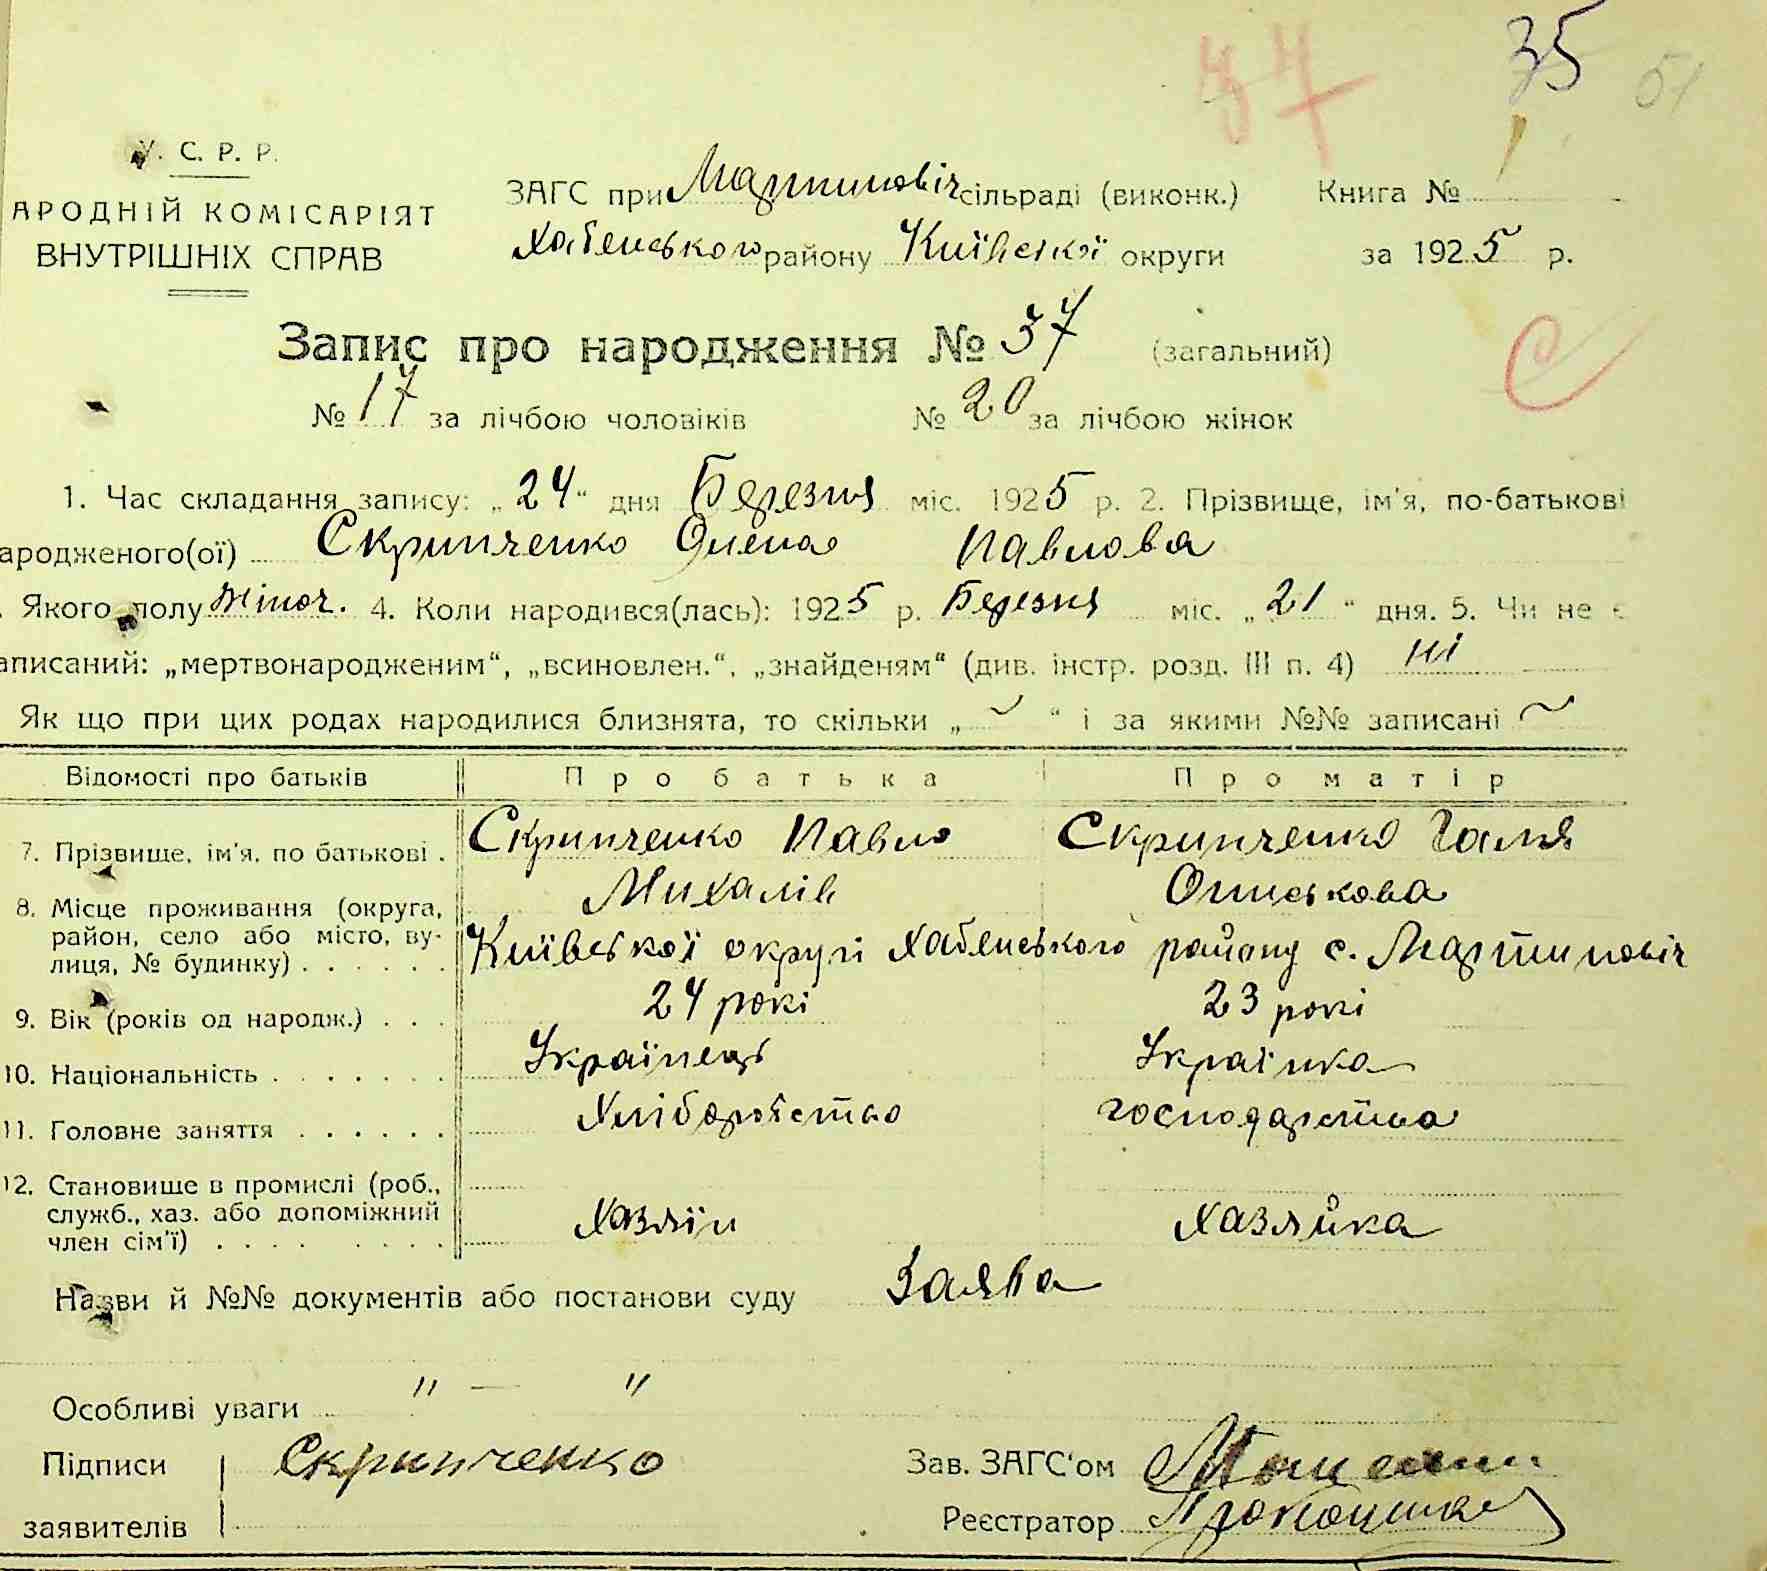 35 51
У. С. Р. Р.
АРОДНІЙ КОМІСАРІЯТ
ВНУТРІШНІХ СПРАВ
ЗАГС при Мартиновіч сільраді (виконк.) Книга №
Хабенського району Київської округи за 1925 р.
Запис про народження № 37 (загальний)
№ 17 за лічбою чоловіків № 20 за лічбою жінок
1. Час складання запису: „24“ дня Березня міс. 1925 р. 2. Прізвище, ім'я, по-батькові
ародженого(ої) Скрипченко Олена Павлова
. Якого полу жіноч. 4. Коли народився(лась): 1925 р. Березня міс. „21“ дня. 5. Чи не є
аписаний: „мертвонародженим“, „всиновлен.“, „знайденям“ (див. інстр. розд. III п. 4) ні
Як що при цих родах народилися близнята, то скільки „ ~ “ і за якими №№ записані ~
Відомості про батьків Про батька Про матір
7. Прізвище, ім'я, по батькові . Скрипченко Павло Скрипченко Галя
Михалів Описькова
8. Місце проживання (округа,
район, село або місто, ву-
лиця, № будинку) . . . . . . Київської округи Хабенського району с. Мартиновіч
9. Вік (років од народж.) . . . 24 рокі 23 рокі
10. Національність . . . . . . . Українець Українка
11. Головне заняття . . . . . . Хліборобство господарства
12. Становище в промислі (роб.,
служб., хаз. або допоміжний
член сім'ї) . . . . . . . . Хазяїн Хазяйка
Назви й №№ документів або постанови суду Заява
Особливі уваги " — "
Підписи Скрипченко Зав. ЗАГС'ом
заявителів Реєстратор